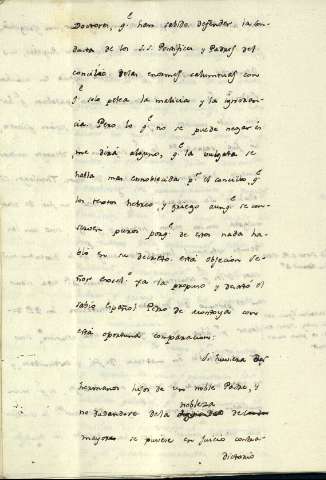 Doctores, q.e han sabido defender la con-
ducta de los S.S. Pontifices y Padres del
concilio delas enormes calumnias con
q.e solo pelea la malicia y la ignoran-
cia. Pero lo q.e no se puede negar es
me dirá alguno, q.e la vulgata se
halla mas ennoblecida p.r el concilio, q.e
los textos hebreo, y griego aunq.e se con-
serven puros porq.e de estos nada ha-
bló en su decreto. esta objecion Se-
ñor ya la propuso y desató el
sabio español Pedro de con
esta oportuna comparacion:
Si huviera dos
hermanos hijos de un noble Padre, y
no dudandose de la nobleza de
mayores se pusiese en juicio contra-
dictorio